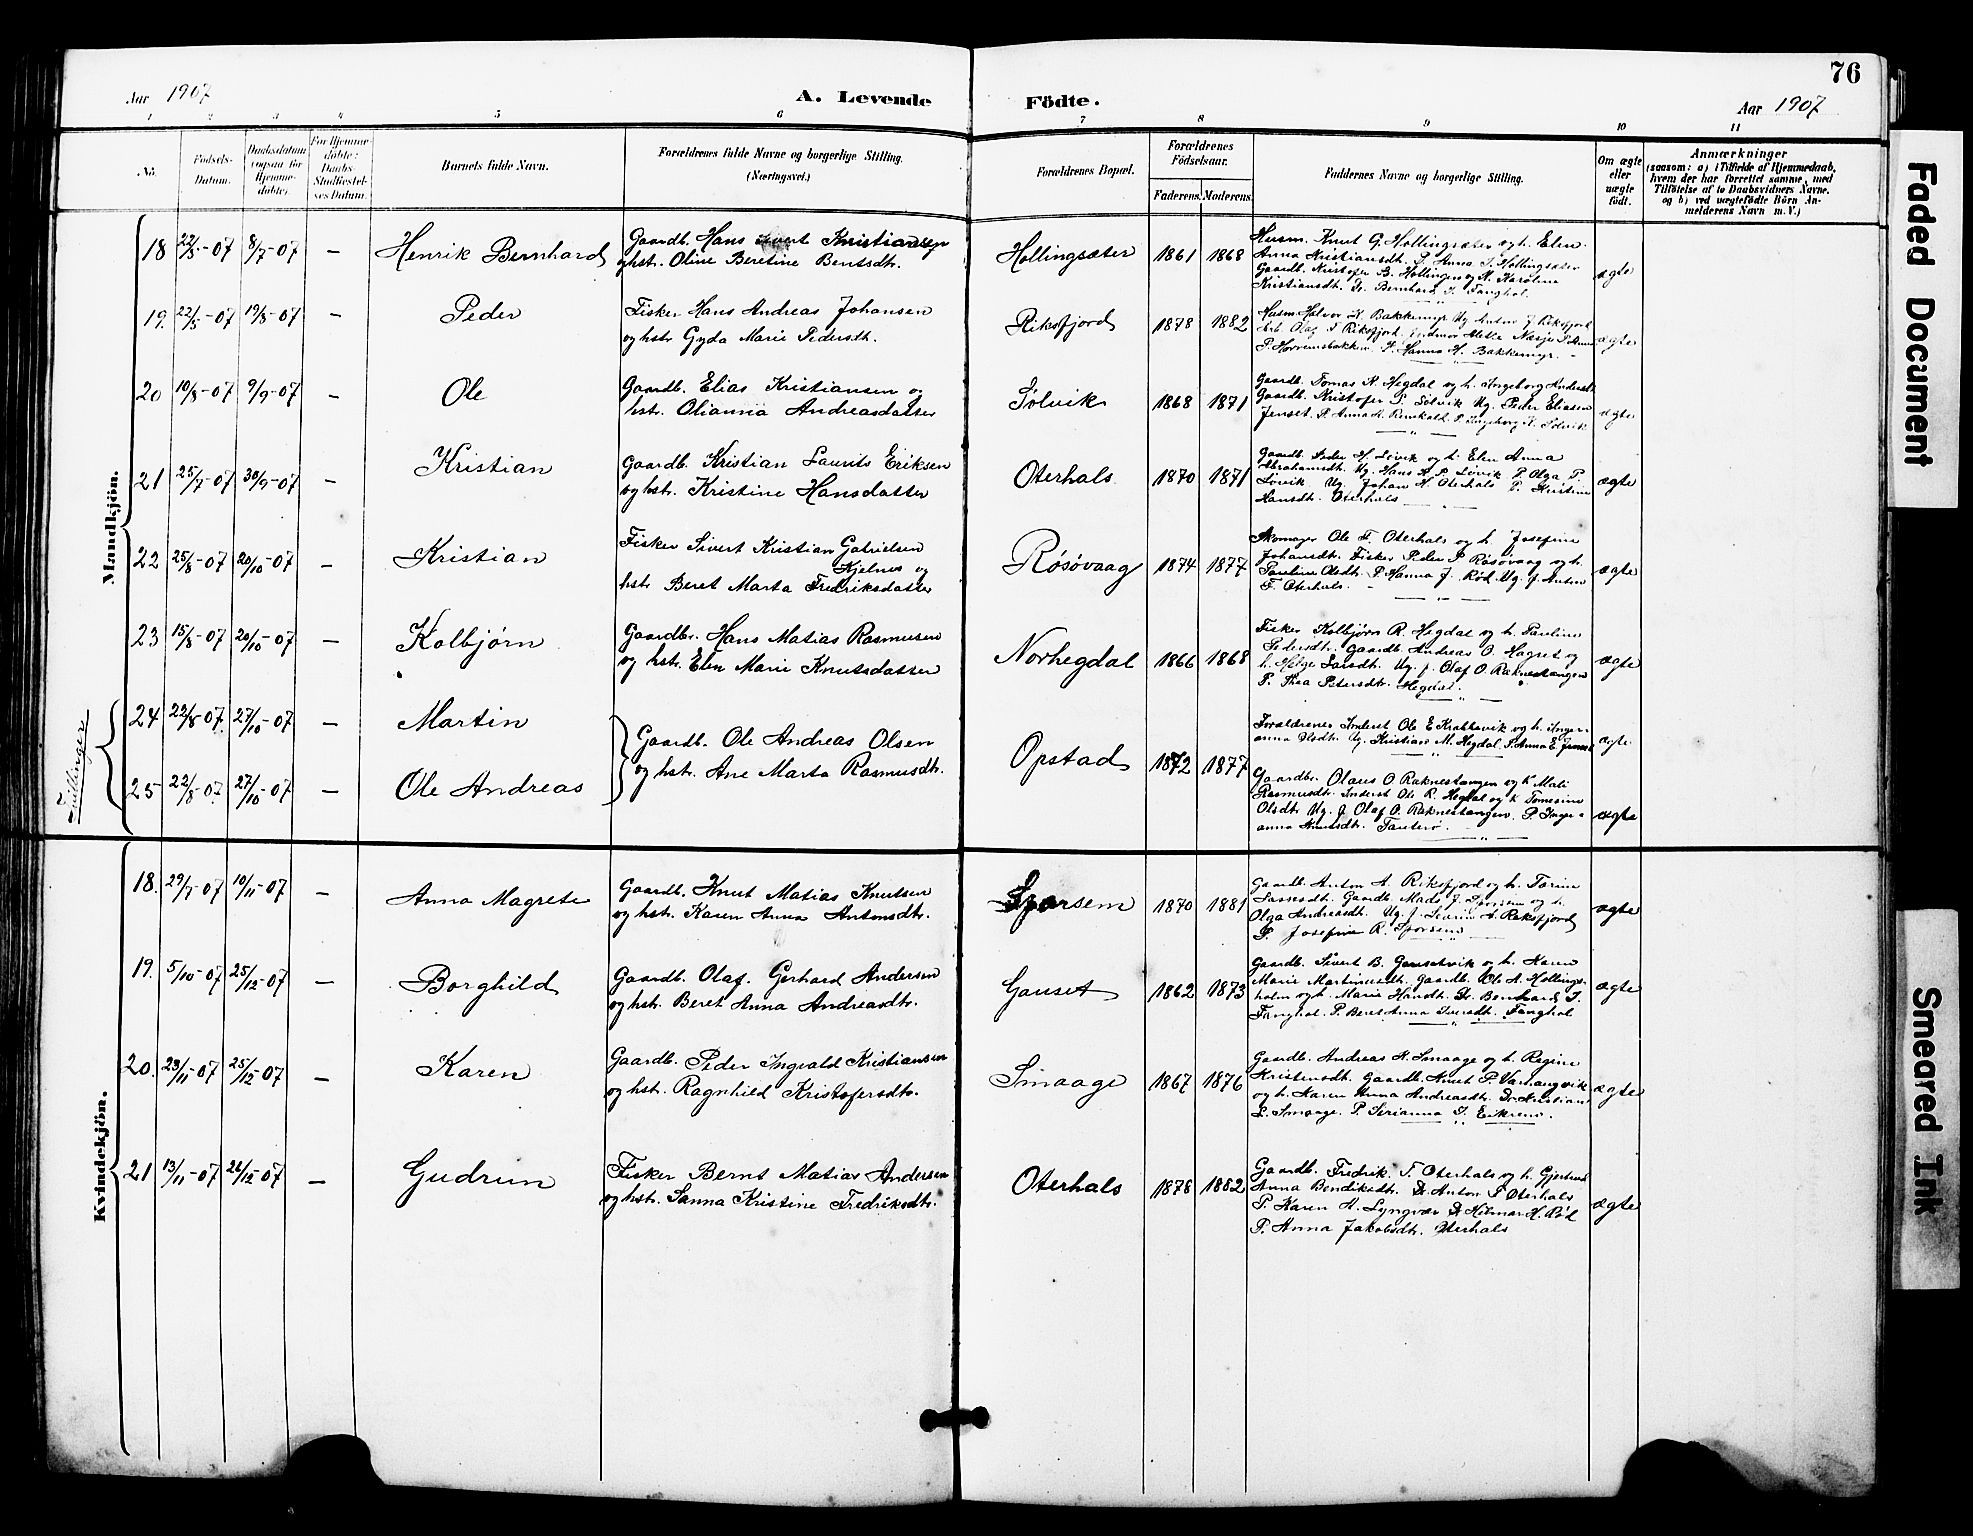 76
Aar 1907
A. Levende
Födte.
Aar 1907
1 2 3 4 5 6 7 8 9 10 11
No.
Födsels-
Datum.
Daabsdatum
(ogsaa for
Hjemme-
döbte).
For Hjemme-
döbte:
Daabs-
Stadfæstel-
ses-Datum.
Barnets fulde Navn.
Forældrenes fulde Navne og borgerlige Stilling.
(Næringsvei.)
Forældrenes Bopæl.
Forældrenes
Födselsaar.
Faderens. Moderens.
Faddernes Navne og borgerlige Stilling.
Om ægte
eller
uægte
födt.
Anmærkninger
(saasom: a) i Tilfælde af Hjemmedaab,
hvem der har forrettet samme, med
Tilföielse af to Daabsvidners Navne,
og b) ved uægtefödte Börn An-
melderens Navn m. V.)
Mandkjön.
18 22/5-07 8/7-07 — Henrik Bernhard
Gaardb. Hans Sivert Kristiansen
og hst. Oline Beretine Bentsdtr.
Hollingsæter 1861 1868
Husm. Knut G. Hollingsæter og h. Elen
Anna Kristiansdt. P. Anna S. Hollingsæter
Gaardb. Kristofer B. Hollingen og K. Karolina
Kristiansdt. Dr. Bernhard S. Tanghol.
ægte
19. 22/5-07 19/8-07 — Peder
Fisker Hans Andreas Johansen
og hstr. Gyda Marie Pedersdt.
Riksfjord 1878 1882
Husm. Halvor H. Bakkemyr Ug. Anton J. Riksfjord
P. Hanna H. Bakkemyr.
ægte
20 10/8-07 9/9-07 — Ole
Gaardb. Elias Kristiansen og
hst. Olianna Andreasdatter
Solvik 1868 1871
Gaardb. Tomas K. Hegdal og h. Ingeborg Andersdt
Gaardb. Kristofer P. Solvik Ug. Peder Eliasen
Jenset. P. Anna H. P. Ingeborg K. Solvik
ægte
21 25/7-07 30/9-07 — Kristian
Gaardb. Kristian Laurits Eriksen
og hst. Kristine Hansdatter
Oterhals 1870 1871
Gaardb. Peder H. Løvik og h. Elen Anna
Abrahamsdt. Ug. Hans A. P. Løvik P. Olga P.
Løvik Ug. Johan H. Oterhals P. Kristine
Hansdt. Oterhals
ægte
22 25/8-07 20/10-07 — Kristian
Fisker Sivert Kristian Gabrielsen
Kjelnes og
hst. Beret Marta Fredriksdatter
Røsøvaag 1874 1877
Skomager Ole F. Oterhals og h. Josefine
Johansdt. Fisker Peder P. Røsøvaag og h.
Pauline Olsdt. P. Hanna J. Rød Ug. J. Anton
F. Oterhals.
ægte
23 15/8-07 20/10-07 — Kolbjørn
Gaardbr. Hans Matias Rasmusen
og hst. Elen Marie Knutsdatter
Norhegdal 1866 1868
Fisker Kolbjørn R. Hegdal og h. Pauline
Pedersdt. Gaardb. Andreas O. Hagset og
h. Helge Larsdt. Ug. J. Olaf O. Raknestangen
P. Thea Petersdt. Hegdal.
ægte
Tvillinger
24 22/8-07. 27/10-07 — Martin
25 22/8-07. 27/10-07 — Ole Andreas
Gaardb. Ole Andreas Olsen
og hst. Ane Marta Rasmusdt.
Opstad 1872 1877
Forældrene Inderst Ole E. Krakkavik og h. Inger-
anna Olsdt. Ug. Kristian M. Hegdal P. Anna E. Jenset
ægte
Gaardbr. Olaus O. Raknestangen og h. Mali
Rasmusdt. Inderst Ole R. Hegdal og h. Tomesine
Olsdt. Ug. J. Olaf O. Raknestangen. P. Inger-
anna Knutsdt. Tauterø.
ægte
Kvindekjön.
18. 29/7-07 10/11-07 — Anna Magrete
Gaardb. Knut Matias Knutsen
og hst. Karen Anna Antonsdt.
Sporsem 1870 1881
Gaardb. Anton A. Riksfjord og h. Tarine
Larsdt. Gaardb. Mads J. Sporsem og h.
Olga Andreasdt. Ug. J. A. Riksfjord
P. Josefine R. Sporsem
ægte
19. 5/10-07 25/12-07 — Borghild
Gaardb. Olaf Gerhard Andersen
og hst. Beret Anna Andreasdtr.
Gauset 1862 1873
Gaardb. Sivert B. Gausetvik og h. Karen
Marie Martinusdt. Gaardb. Ole A. Hollings-
holm og h. Marie Hansdt. Dr. Bernhard S.
Tanghol. P. Beret Anna Iversdt. Tanghol
ægte
20. 23/11-07 25/12-07 — Karen
Gaardb. Peder Ingvald Kristiansen
og hst. Ragnhild Kristofersdt.
Smaage 1867 1876
Gaardb. Andreas K. Smaage og h. Regine
Kristensdt. Gaardb. Knut P. Varhaugvik
og h. Karen Anna Andreasdt. Dr. Kristian
L. Smaage. P. Serianna S. Eikrem.
ægte
21 13/11-07 26/12-07 — Gudrun
Fisker Bernt Matias Andersen
og hst. Sanna Kristine Fredriksdt.
Oterhals 1878 1882
Gaardb. Fredrik F. Oterhals og h. Gjertrud
Anna Bendiksdt. Dr. Anton F. Oterhals
P. Karen H. Lyngvær Dr. Hilmar H. Rød
P. Anna Jakobsdt. Oterhals
ægte
Faded Document
Smeared Ink